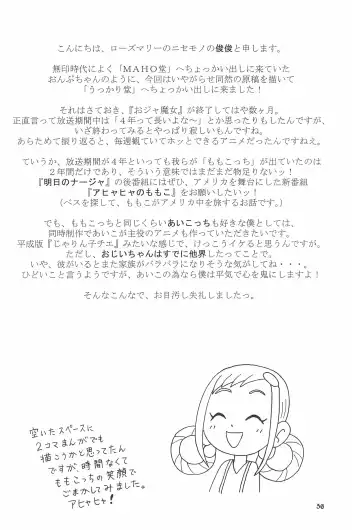 こんにちは、ローズマリーのニセモノの俊俊と申します。
無印時代によく「MAHO堂」へちょっかい出しに来ていた
おんぷちゃんのように、今回はいやがらせ同然の原稿を描いて
「うっかり堂」へちょっかい出しに来ました！
それはさておき、『おジャ魔女』が終了してはや数ヶ月。
正直言って放送期間中は「４年って長いよな〜」とか思ったりもしたんですが、
いざ終わってみるとやっぱり寂しいもんですね。
あらためて振り返ると、毎週観ていてホッとできるアニメだったんですねえ。
ていうか、放送期間が４年といっても我らが「ももこっち」が出ていたのは
２年間だけであり、そういう意味ではまだまだ物足りないのです。
『明日のナージャ』の後番組にはぜひ、アメリカを舞台にした新番組
『アヒャヒャのももこ』をお願いしたいッ！
（ベスを探して、ももこがアメリカ中を旅するお話です。）
でも、ももこっちと同じくらいあいこっちも好きな僕としては、
同時制作であいこが主役のアニメも作っていただきたいです。
平成版『じゃりん子チエ』みたいな感じで、けっこうイケると思うんですが。
ただし、おじいちゃんはすでに他界したってことで。
いや、彼がいるとまた家族がバラバラになりそうな気がしてね・・・。
ひどいこと言うようですが、あいこの為なら僕は平気で心を鬼にしますよ！
そんなこんなで、お目汚し失礼しましたっ。
空いたスペースに
２コマまんがでも
描こうかと思ってたん
ですが、時間なくて
ももこっちの笑顔で
ごまかしてみました。
アヒャヒャ！
56